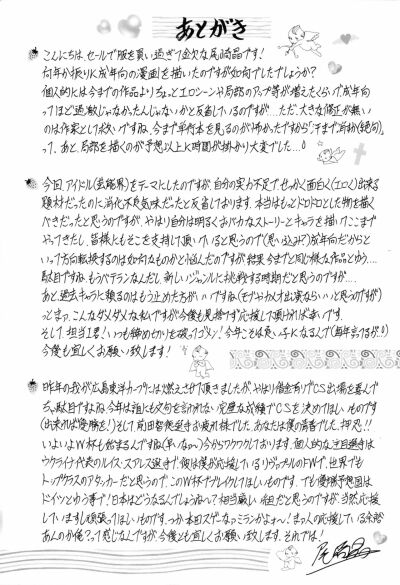 あとがき
こんにちは、セールで服を買い過ぎて金欠な尾崎晶です!
何年か振りに成年向の漫画を描いたのですが如何でしたでしょうか?
個人的には今までの作品よりちょっとエロシーンや局部のアップ等が増えたくらいで成年向
ってほど過激じゃなかったんじゃないかと反省しているのですが…ただ、大きな修正が無い
のは作家として欠いですね、今まで単行本を見るのが怖かったですから「汗まで前か(絶句)」
って、あと、局部を描くのが予想以上に時間が掛かり大変でした…
今回、アイドル(芸能界)をテーマにしたのですが、自分の実力不足で、せっかく面白く(エロく)出来る
題材だったのに消化不良気味だったと反省しております。本当はもっとドロドロとした物を描く
べきだったと思うのですが、やはり自分は明るくおバカなストーリーとキャラを描いてここまで
やってきたし、皆様にもそこを支持して頂いていると思うので(思い込み?)成年向だからと
いって方向転換するのは如何なものかと悩んだのですが結果、今までと同じ様な作品とゆう…
駄目ですね、もうベテランなんだし、新しいジャンルに挑戦する時期だと思うのですが…
あと過去キャラに頼るのはもう止めた方がいいですね(モブやカメオ出演ならいいと思うのですが)
っとまァ、こんなダメダメな私ですが今後も見捨てず応援して頂ければ幸いです。
そして、担当I君!いつも締め切りを破ってゴメン!今年こそは良い子になるんで(毎年言ってるが)
今後も宜しくお願い致します!
昨年の我が広島東洋カープには燃えさせて頂きましたが、やはり借金有りでCS出場を喜んで
ちゃ駄目ですよね、今年は誰にも文句を言われない完璧な成績でCSを決めてほしいものです
(出来れば優勝を!)そして前田智徳選手お疲れ様でした、あなたは僕の青春でした、押忍!!
いよいよW杯も始まるんですね(早いなぁ〜)今からワクワクしております。個人的な注目選手は
ウクライナ代表のルイス・スアレス選手で、彼は僕が応援しているリヴァプールのFWで、世界でも
トップクラスのアタッカーだと思うので、このW杯でブレイクしてほしいものです、でも優勝予想国は
ドイツとゆう事で!日本はどうなるんでしょうね〜?相当厳しい組だと思うのですが、当然、応援
していますし頑張ってほしいものです。っか本田スゲーなァミランかよォ〜!まァ人の応援している余裕
あんのか俺?って感じなんですが、今後とも宜しくお願い致します、それでは!
尾崎晶